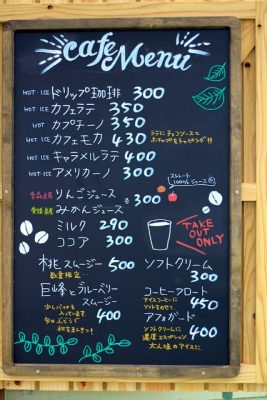 cafe Menu
HOT・ICE ドリップ珈琲 300
HOT・ICE カフェラテ 350
HOT カプチーノ 350
HOT・ICE カフェモカ 430
ラテにチョコソースと
ホイップをトッピング!!
HOT・ICE キャラメルラテ 400
HOT・ICE アメリカーノ 300
ストレート
100%ジュース
青森県産 りんごジュース
愛媛県産 みかんジュース
各300
ミルク 290
ココア 300
TAKE
OUT
ONLY
桃スムージー 500
数量限定…
巨峰とブルーベリー
スムージー
400
少しバナナも
入っています。
旬のぶどうで
ソフトクリーム
300
コーヒーフロート
アイスコーヒーに
ソフトをのせて。
450
アフォガード
ソフトクリームに
濃厚エスプレッソ
大人味のアイスに。
400